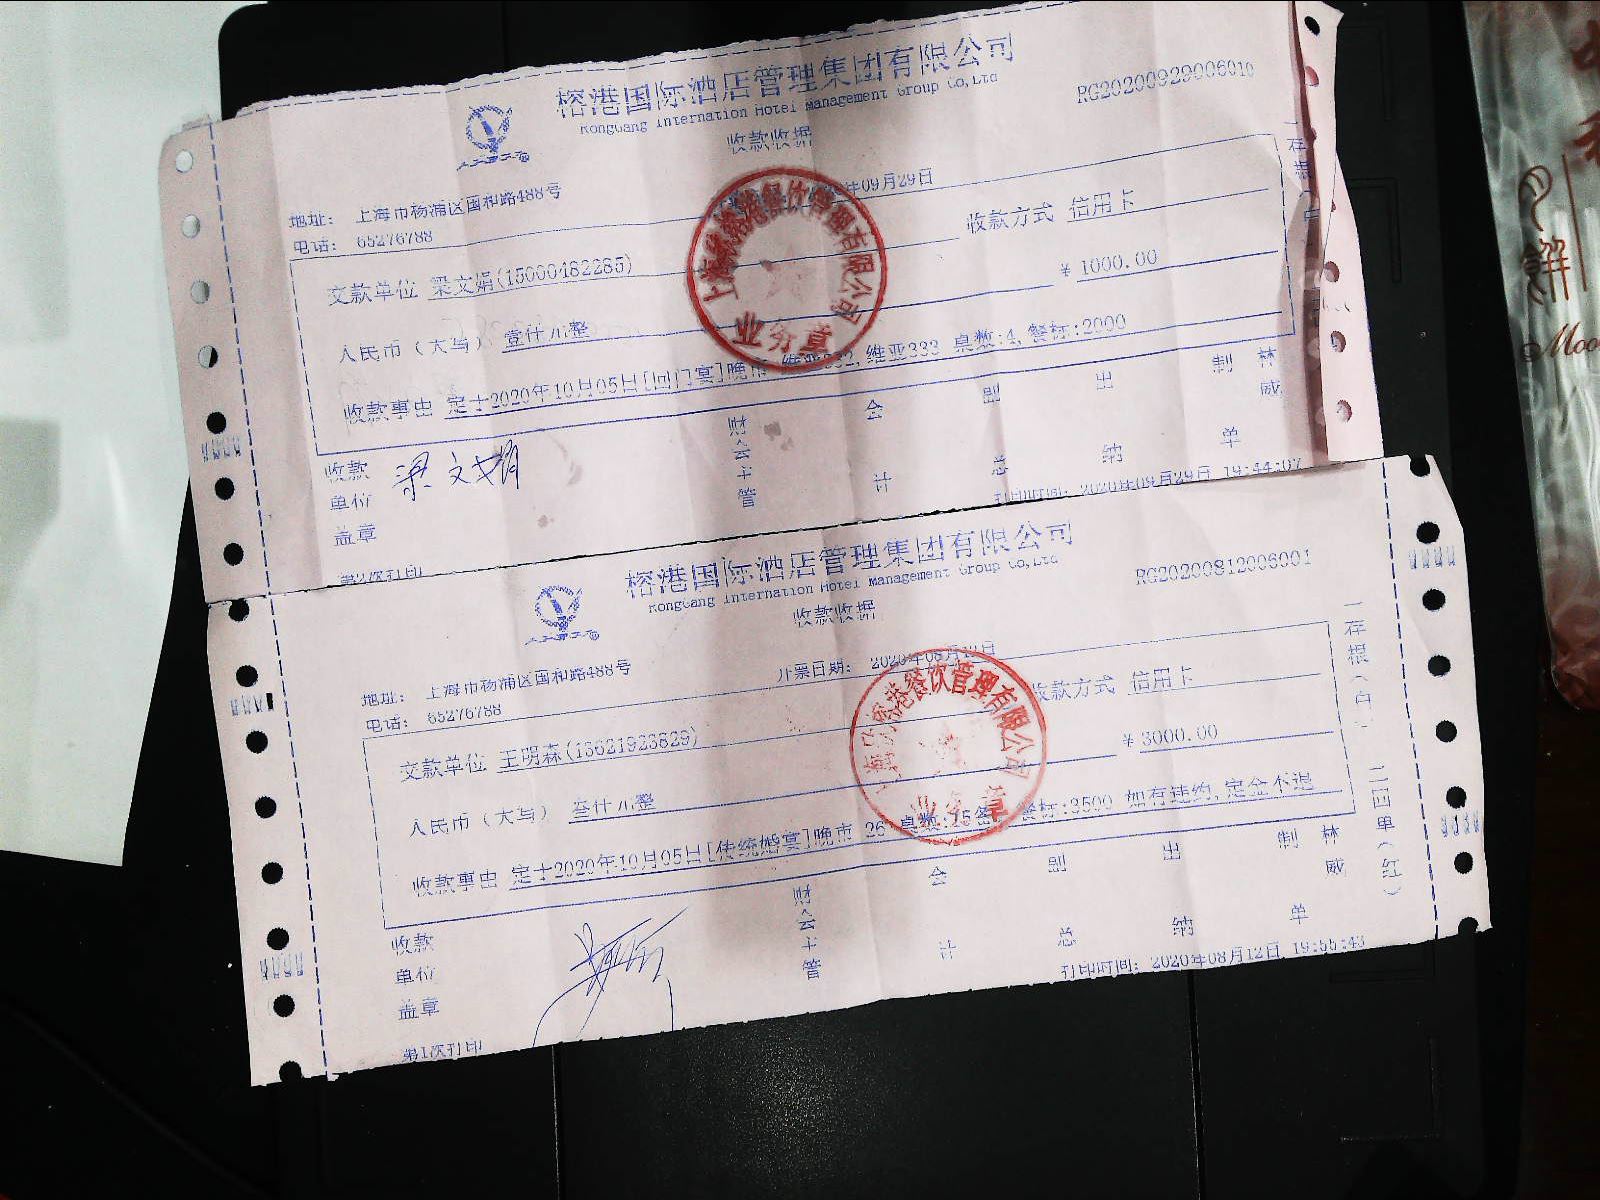 榕港国际酒店管理集团有限公司
RongGang Internation Hotel Management Group Co,Ltd
RG20200929006010
收款收据
地址: 上海市杨浦区国和路488号
年09月29日
电话: 65276788
收款方式 信用卡
交款单位 梁文娟(15000482285)
¥ 1000.00
人民币(大写) 壹仟元整
收款事由 定于2020年10月05日[回门宴]晚市 维亚332,维亚333 桌数:4,餐标:2000
收款单位盖章
梁文娟
财会主管
会计
副总
出纳
制单
林威
打印时间: 2020年09月29日 19:44:07
第2次打印
业务章
榕港国际酒店管理集团有限公司
RongGang Internation Hotel Management Group Co,Ltd
RG20200812006001
收款收据
地址: 上海市杨浦区国和路488号
开票日期: 2020年08月12日
电话: 65276788
收款方式 信用卡
交款单位 王明森(13621923829)
¥ 3000.00
人民币(大写) 叁仟元整
收款事由 定于2020年10月05日[传统婚宴]晚市 26 桌数: 餐标:3500 如有违约,定金不退
收款单位盖章
财会主管
会计
副总
出纳
制单
林威
打印时间: 2020年08月12日 19:55:43
第1次打印
一存根(白)
二回单(红)
港餐饮管理有限公司
业务章
Moo